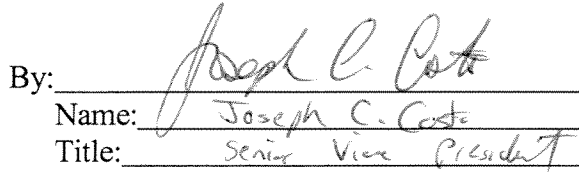 By: Joseph C. Costa
Name: Joseph C. Costa
Title: Senior Vice President